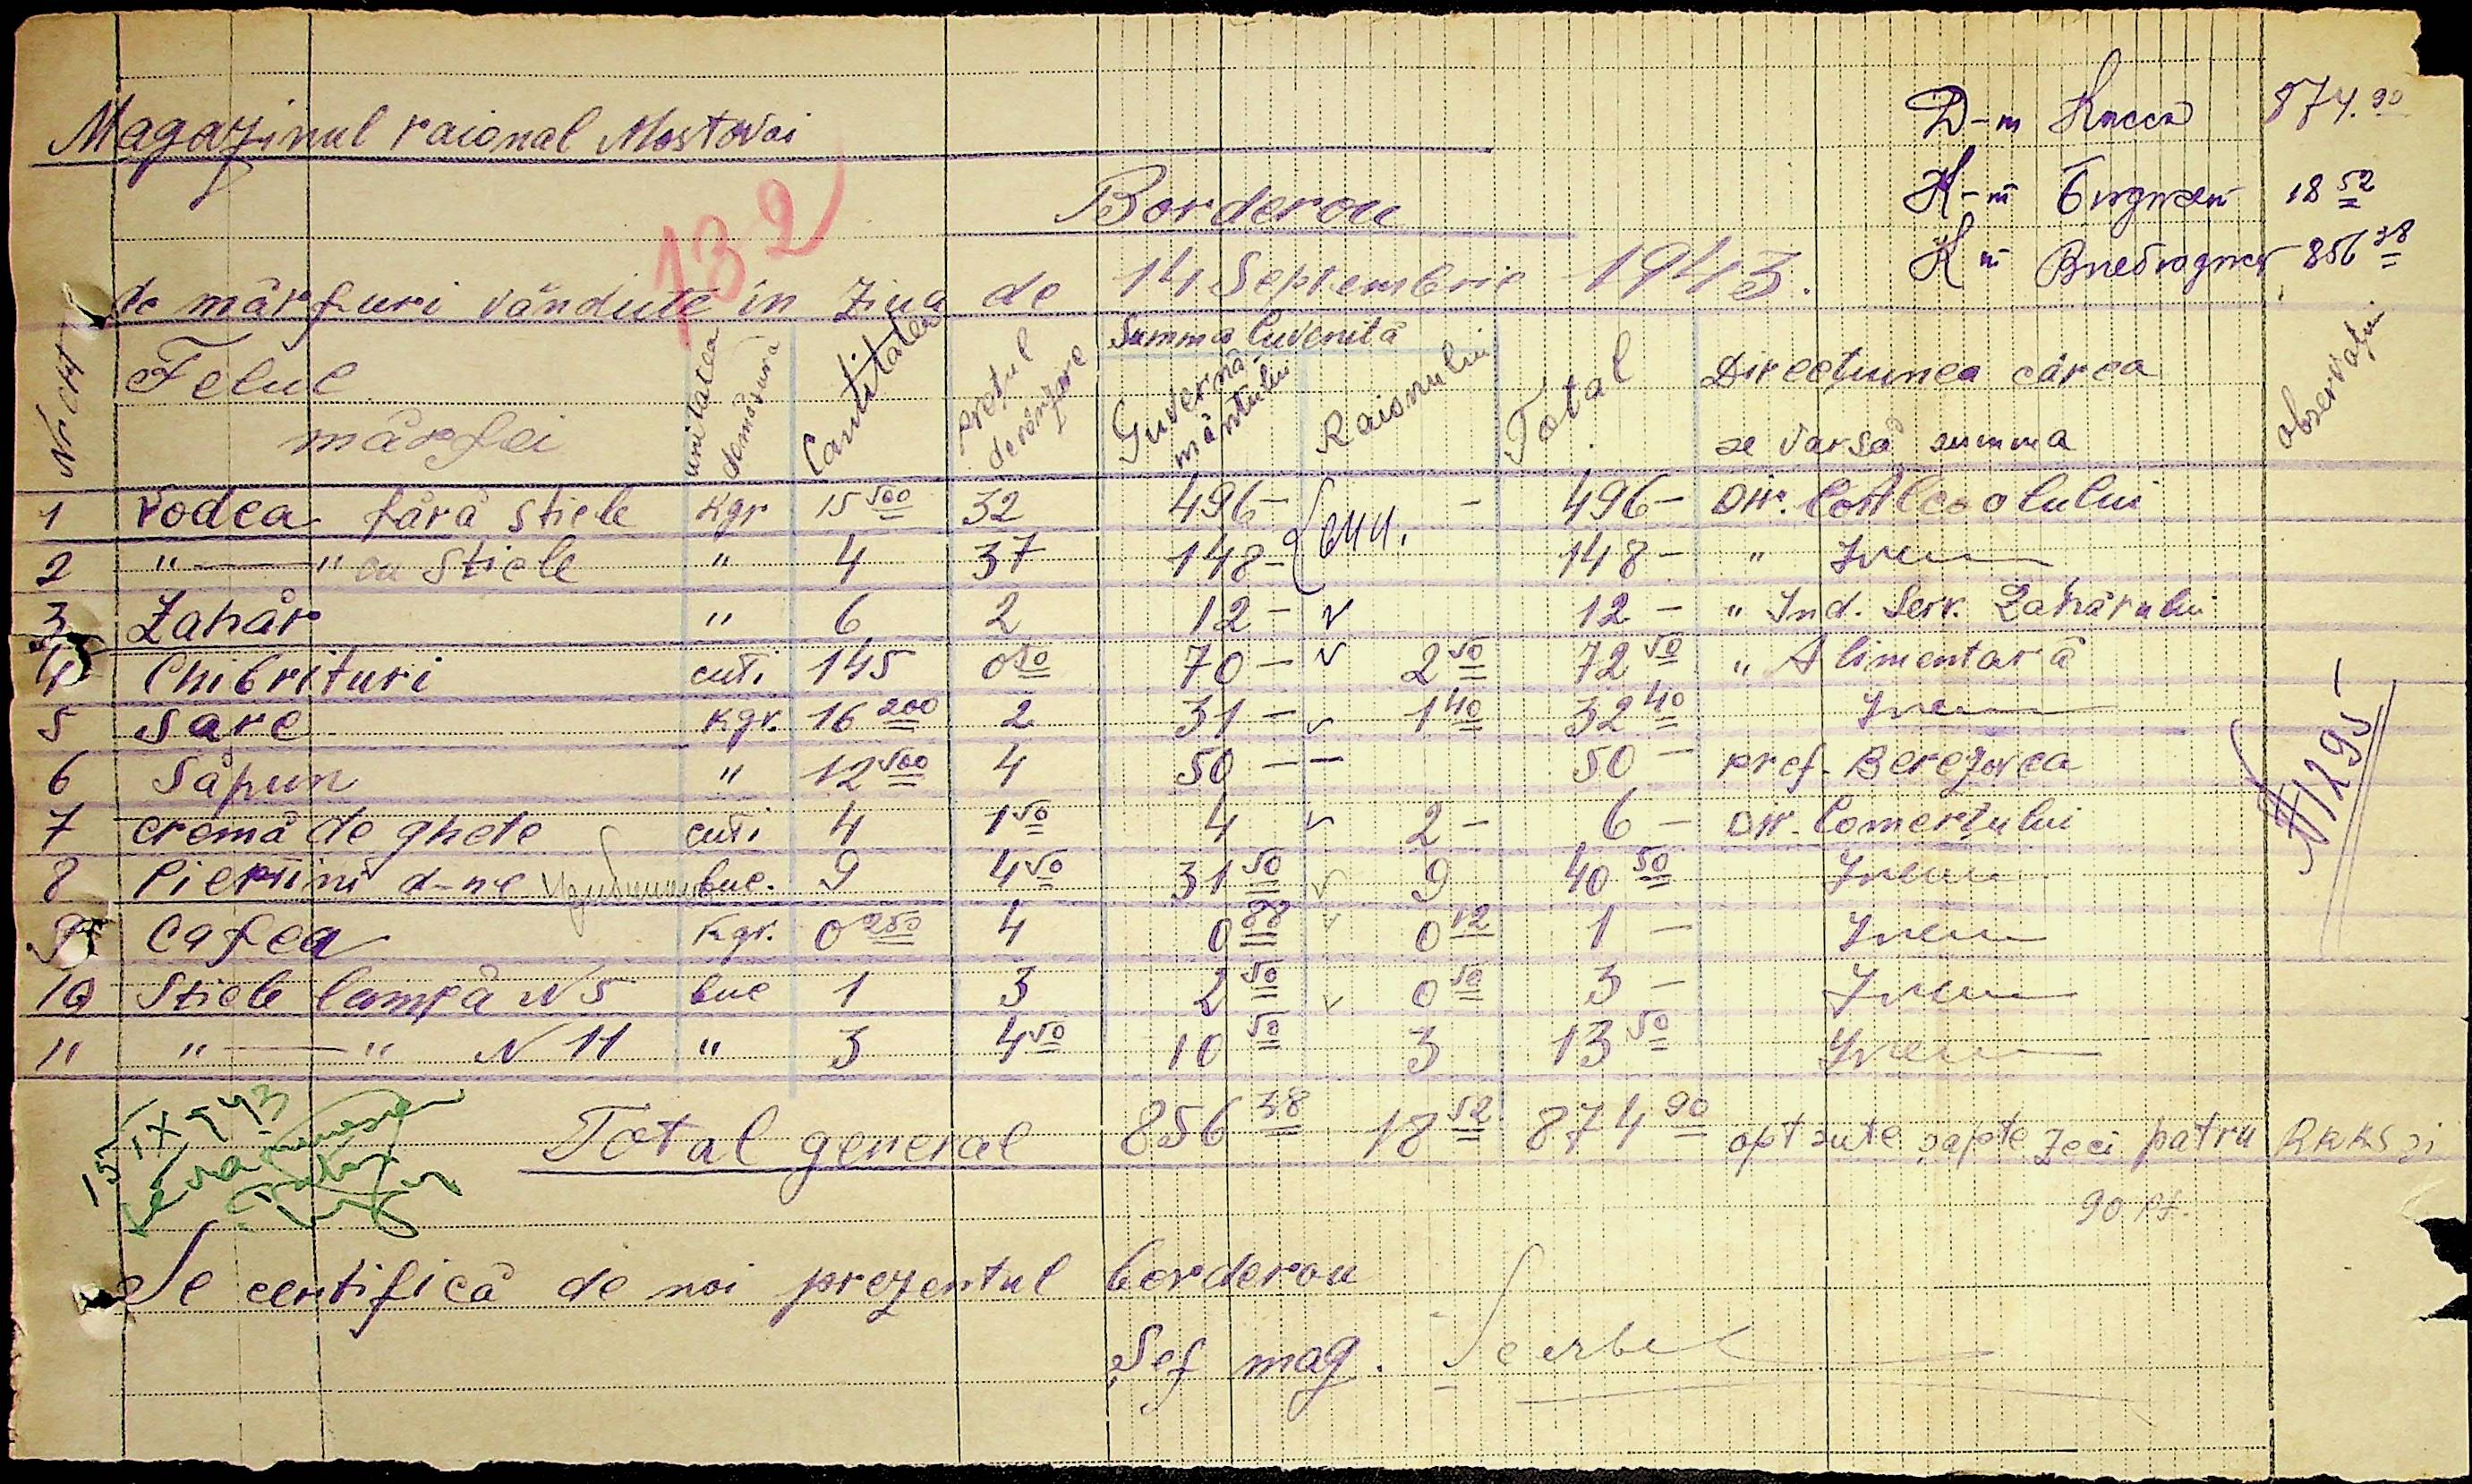 Magazinul raional Mostovoi
Д-т Касса 874.90
К-т Бюджет 18 52
К-т Внебюджет 856 38
132
Borderou
de mărfuri vândute în ziua de 14 Septembrie 1943.
Nr crt Felul mărfei unitatea demăsura Cantitatea prețul de vânzare Summa cuvenită Guvernământului Raionului Total Direcțiunea cărea se varsă summa observațiuni
1 Vodca fără stiele kgr 15 500 32 496 - - 496 - Dir. Alcoolului
644.
2 " — " cu stiele " 4 37 148 - 148 - " Ivem
3 Zahăr " 6 2 12 - v 12 - " Ind. Serv. Zahărului
4 Chibrituri cuti 145 0 50 70 - v 2 50 72 50 " Alimentară
5 Sare kgr. 16 200 2 31 - v 1 40 32 40 Ivem
6 Săpun " 12 500 4 50 - - 50 - pref. Berezovca
7 cremă de ghete cuti 4 1 50 4 v 2 - 6 - Dir. Comerțului
8 Pieptini d-ne buc. 9 4 50 31 50 v 9 40 50 Ivem
9 Cafea kgr. 0 250 4 0 88 v 0 12 1 - Ivem
10 Stiele lampă N 5 buc 1 3 2 50 v 0 50 3 - Ivem
11 " — " N 11 " 3 4 50 10 50 3 13 50 Ivem
N 1295
15 IX 943
Total general 856 38 18 52 874 90 opt sute șapte zeci patru RKKS și
90 pf.
Se certifică de noi prezentul borderou
Șef mag.